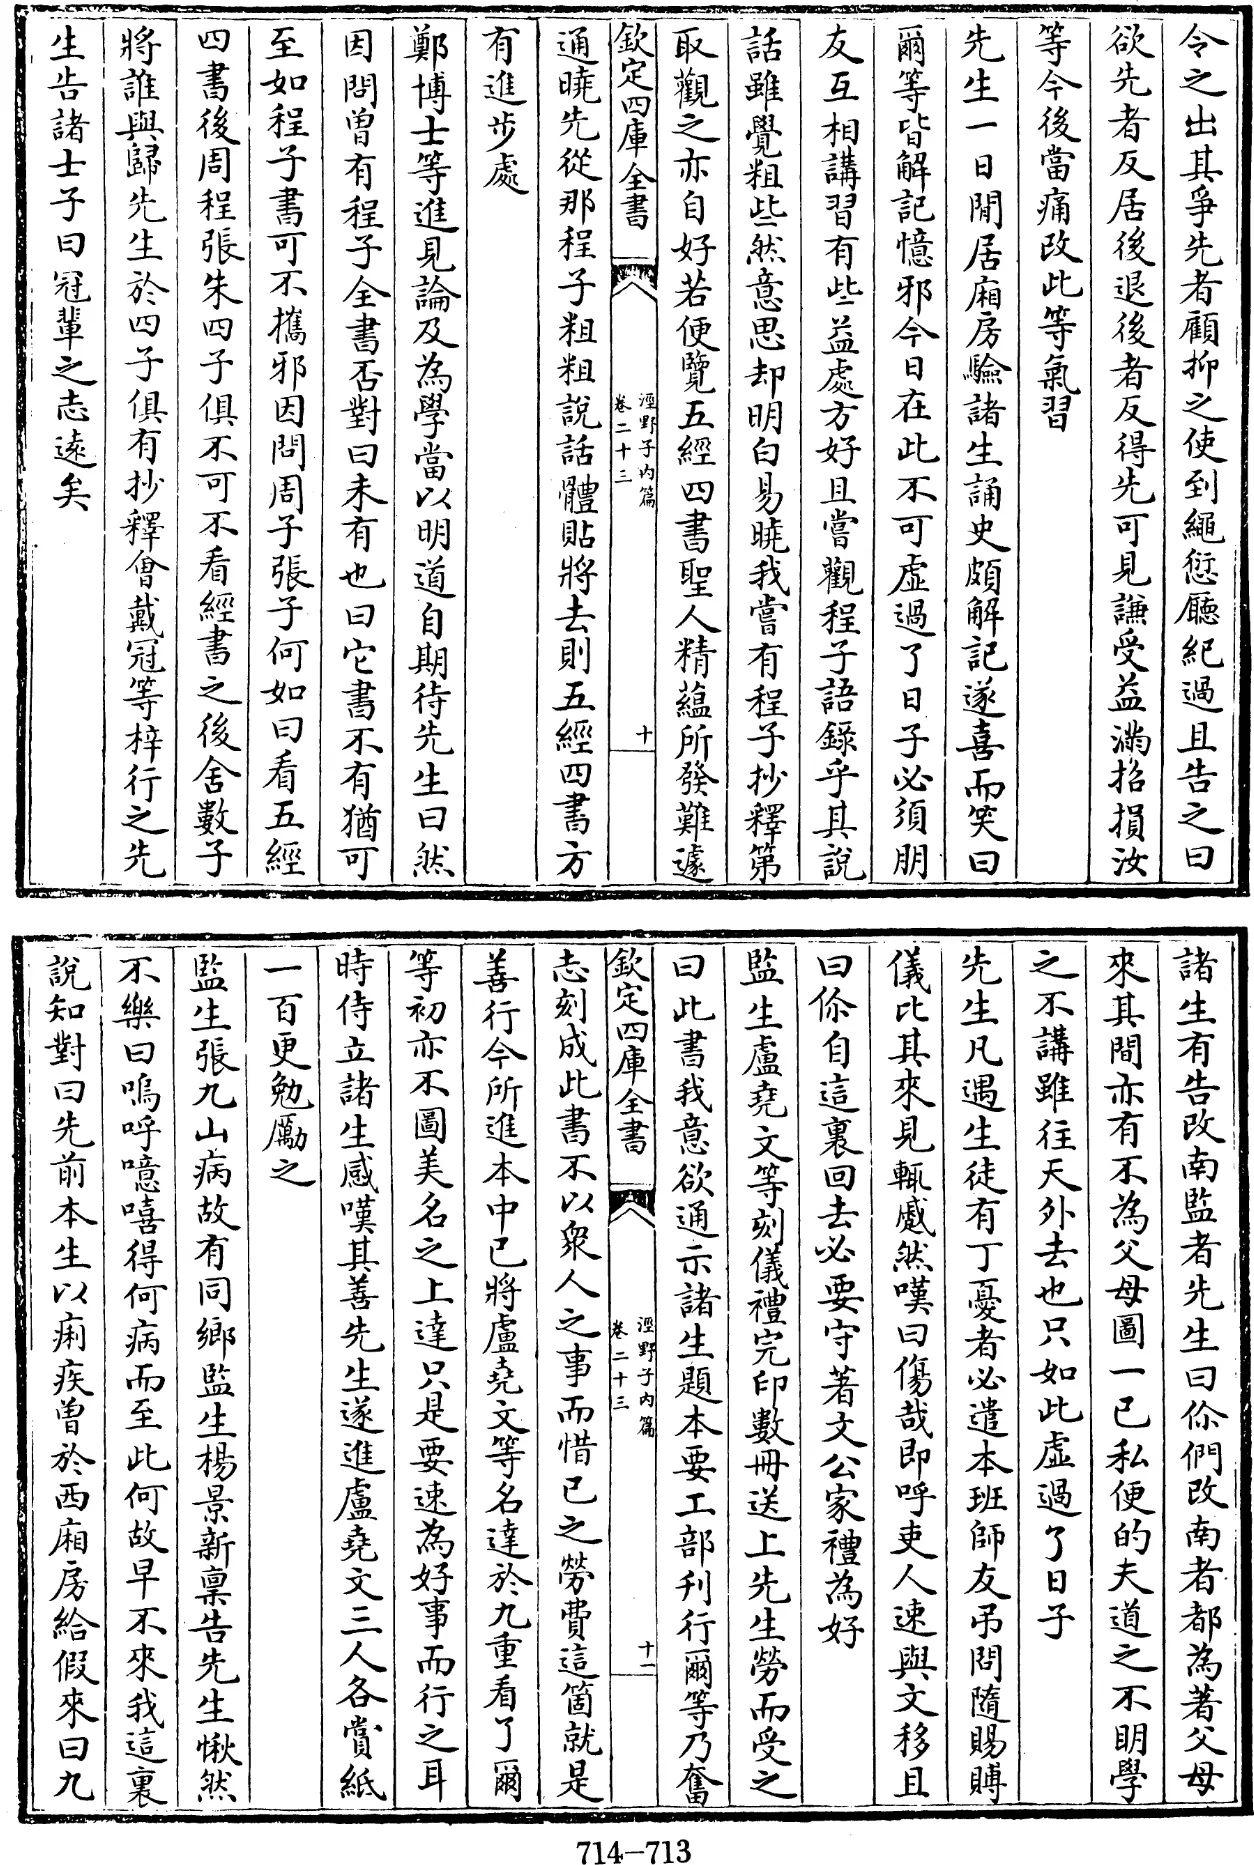 令之出其爭先者顧抑之使到繩愆廳紀過且告之曰
欲先者反居後退後者反得先可見謙受益滿招損汝
等今後當痛改此等氣習
先生一日閒居廂房驗諸生誦史頗解記遂喜而笑曰
爾等皆解記憶邪今日在此不可虛過了日子必須朋
友互相講習有些益處方好且嘗觀程子語錄乎其說
話雖覺粗些然意思却明白易曉我嘗有程子抄釋第
取觀之亦自好若便覽五經四書聖人精蘊所發難遽
欽定四庫全書
涇野子內篇
卷二十三
十
通曉先從那程子粗粗說話體貼將去則五經四書方
有進步處
鄭博士等進見論及為學當以明道自期待先生曰然
因問曾有程子全書否對曰未有也曰它書不有猶可
至如程子書可不攜邪因問周子張子何如曰看五經
四書後周程張朱四子俱不可不看經書之後舍數子
將誰與歸先生於四子俱有抄釋會戴冠等梓行之先
生告諸士子曰冠輩之志遠矣
諸生有告改南監者先生曰你們改南者都為著父母
來其間亦有不為父母圖一已私便的夫道之不明學
之不講雖往天外去也只如此虛過了日子
先生凡遇生徒有丁憂者必遣本班師友弔問隨賜賻
儀比其來見輒慼然嘆曰傷哉即呼吏人速與文移且
曰你自這裏回去必要守著文公家禮為好
監生盧堯文等刻儀禮完印數冊送上先生勞而受之
曰此書我意欲通示諸生題本要工部刋行爾等乃奮
欽定四庫全書
涇野子內篇
卷二十三
十一
志刻成此書不以衆人之事而惜已之勞費這箇就是
善行今所進本中已將盧堯文等名達於九重看了爾
等初亦不圖美名之上達只是要速為好事而行之耳
時侍立諸生感嘆其善先生遂進盧堯文三人各賞紙
一百更勉勵之
監生張九山病故有同鄉監生楊景新稟告先生愀然
不樂曰嗚呼噫嘻得何病而至此何故早不來我這裏
說知對曰先前本生以痢疾曾於西廂房給假來曰九
714–713